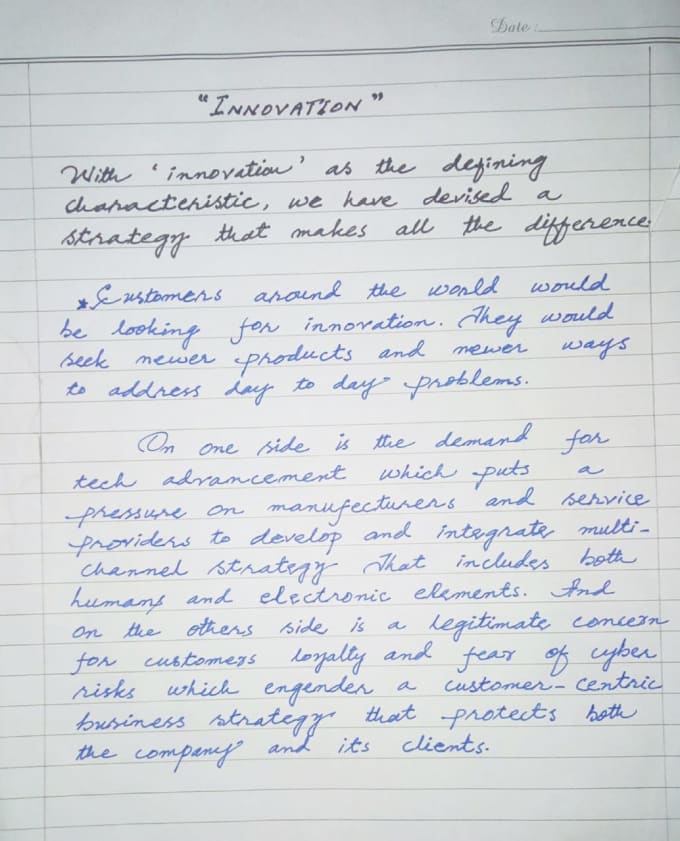 Date :
"INNOVATION"
With 'innovation' as the defining
characteristic, we have devised a
strategy that makes all the difference.
*Customers around the world would
be looking for innovation. They would
seek newer products and newer ways
to address day to day problems.
On one side is the demand for
tech advancement which puts a
pressure on manufecturers and service
providers to develop and integrate multi-
channel strategy That includes both
humans and electronic elements. And
on the others side is a legitimate concern
for customers loyalty and fear of cyber
risks which engender a customer-centric
business strategy that protects both
the company and its clients.